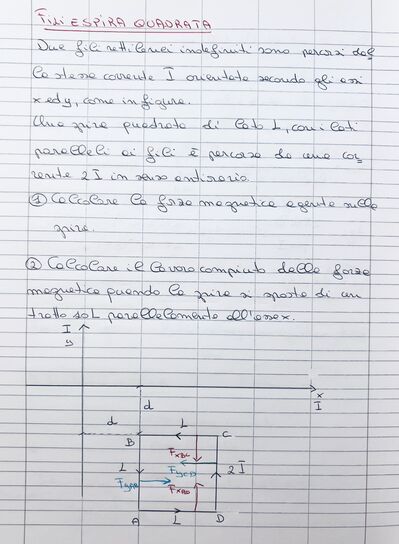 FILI E SPIRA QUADRATA
Due fili rettilinei indefiniti sono percorsi dal
la stessa corrente I orientata secondo gli assi
x ed y, come in figura.
Una spira quadrata di lato L, con i lati
paralleli ai fili è percorsa da una cor
rente 2I in senso antiorario.
① Calcolare la forza magnetica agente sulla
spira.
② Calcolare il lavoro compiuto dalla forza
magnetica quando la spira si sposta di un
tratto s=L parallelamente all'asse x.
I
y
x
I
d
d
B
L
C
L
2I
A
L
D